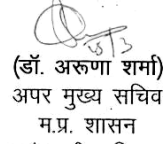 (डॉ. अरूणा शर्मा)
अपर मुख्य सचिव
म.प्र. शासन